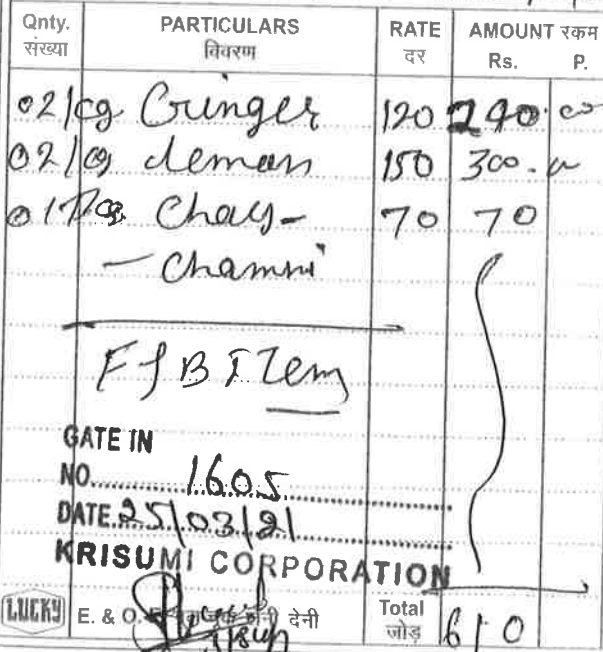 Qnty. PARTICULARS RATE AMOUNT रकम
संख्या विवरण दर Rs. P.
02 kg Ginger 120 240.00
02 kg lemon 150 300.00
01 Pcs Chay- 70 70
- Channi
F & B Item
GATE IN
NO. 1605
DATE 25/03/21
KRISUMI CORPORATION
LUCKY E. & O. देनी Total
जोड़ 610